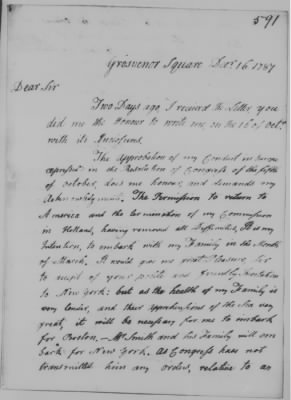 591
Grosvenor Square Decr. 16. 1787
Dear Sir
Two Days ago, I received the Letter you
did me the Honour to write me, on the 16 of Octr.
with its Inclosures.
The Approbation of my Conduct in Europe
expressed in the Resolution of Congress of the fifth
of October, does me honour, and demands my
Acknowledgments. The Permission to return to
America and the termination of my Commission
in Holland, having removed all Difficulties, it is my
Intention, to embark with my Family in the Month
of March. It would give me great Pleasure,
to accept of your polite and friendly Invitation
to New York: but as the health of my Family is
very tender, and their apprehensions of the Sea very
great, it will be necessary for me to embark
for Boston. — Mr. Smith and his Family will em
bark for New York. As Congress have not
transmitted him any orders, relative to an